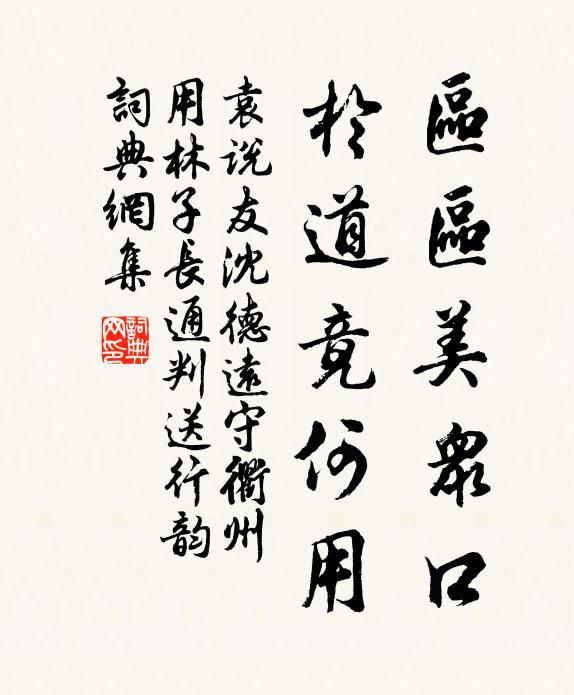 區區美衆口
於道竟何用
袁説友沈德遠守衢州
用林子長通判送行韵
詞典網集
詞典网印